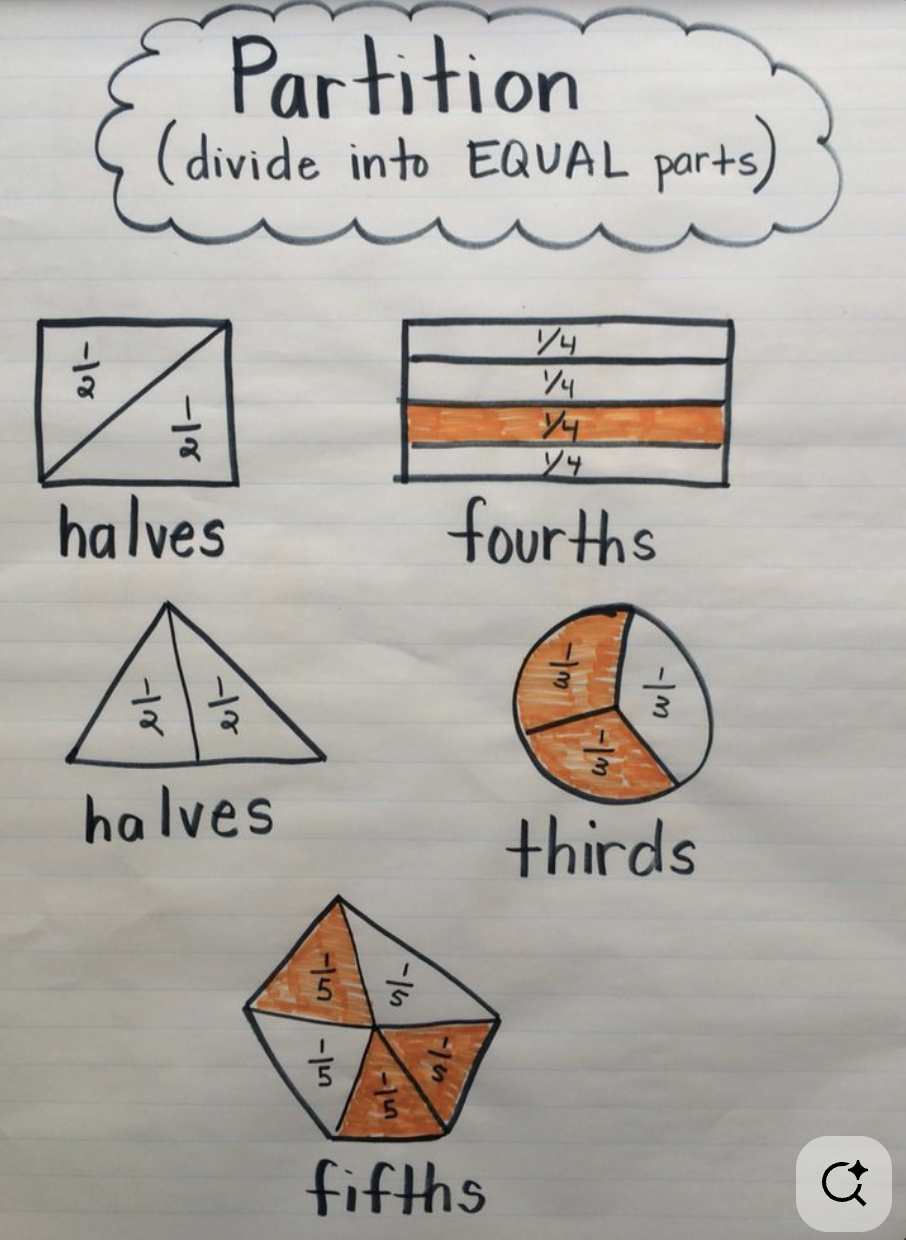 Partition
(divide into EQUAL parts)
1/2
1/2
halves
1/4
1/4
1/4
1/4
fourths
1/2 1/2
halves
1/3
1/3
1/3
thirds
1/5
1/5
1/5
1/5
1/5
fifths